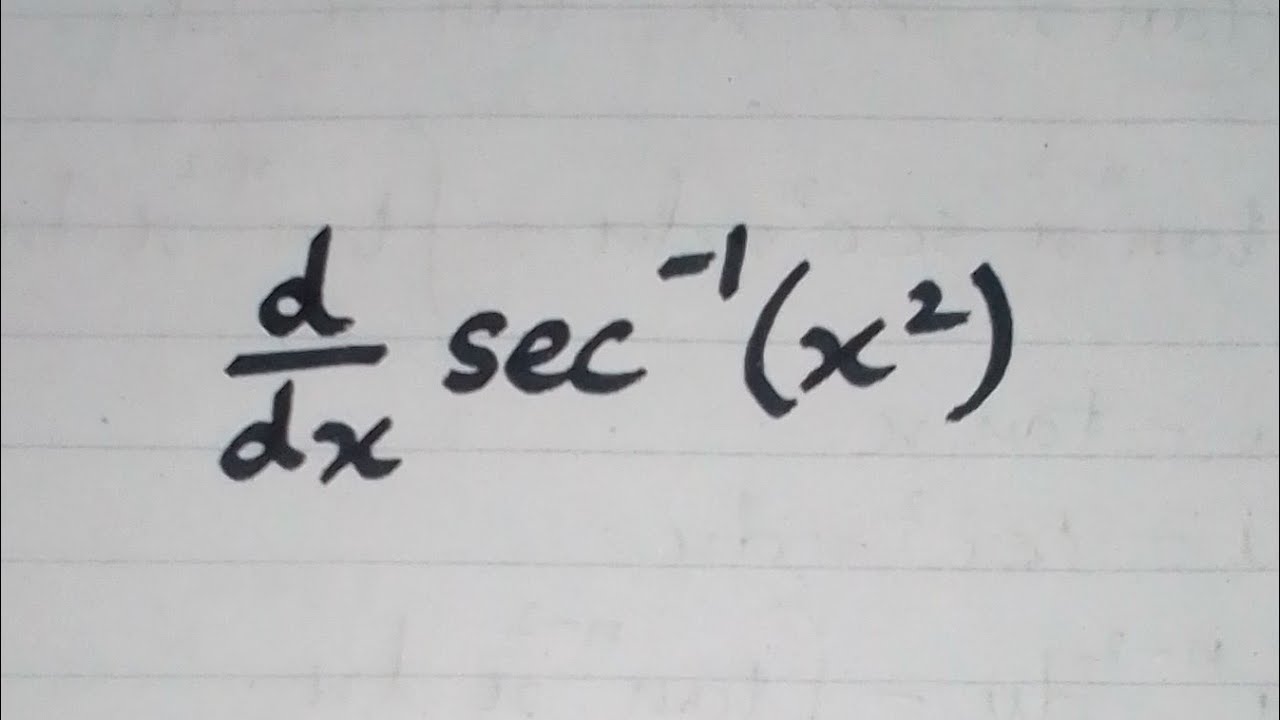 d/dx sec⁻¹(x²)